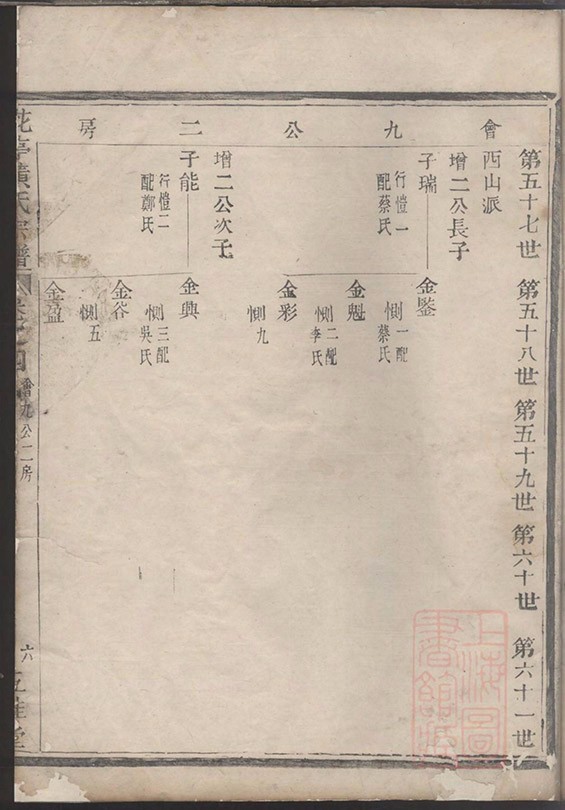 會九公二房
第五十七世
第五十八世
第五十九世
第六十世
第六十一世
西山派
增二公長子
子瑞
行愷一
配蔡氏
金鑒
惻一配
蔡氏
金魁
惻二配
李氏
金彩
惻九
增二公次子
子能
行愷二
配鄭氏
金興
惻三配
吳氏
金谷
惻五
金盈
黃氏宗譜
會九公二房
六
上海圖書館藏